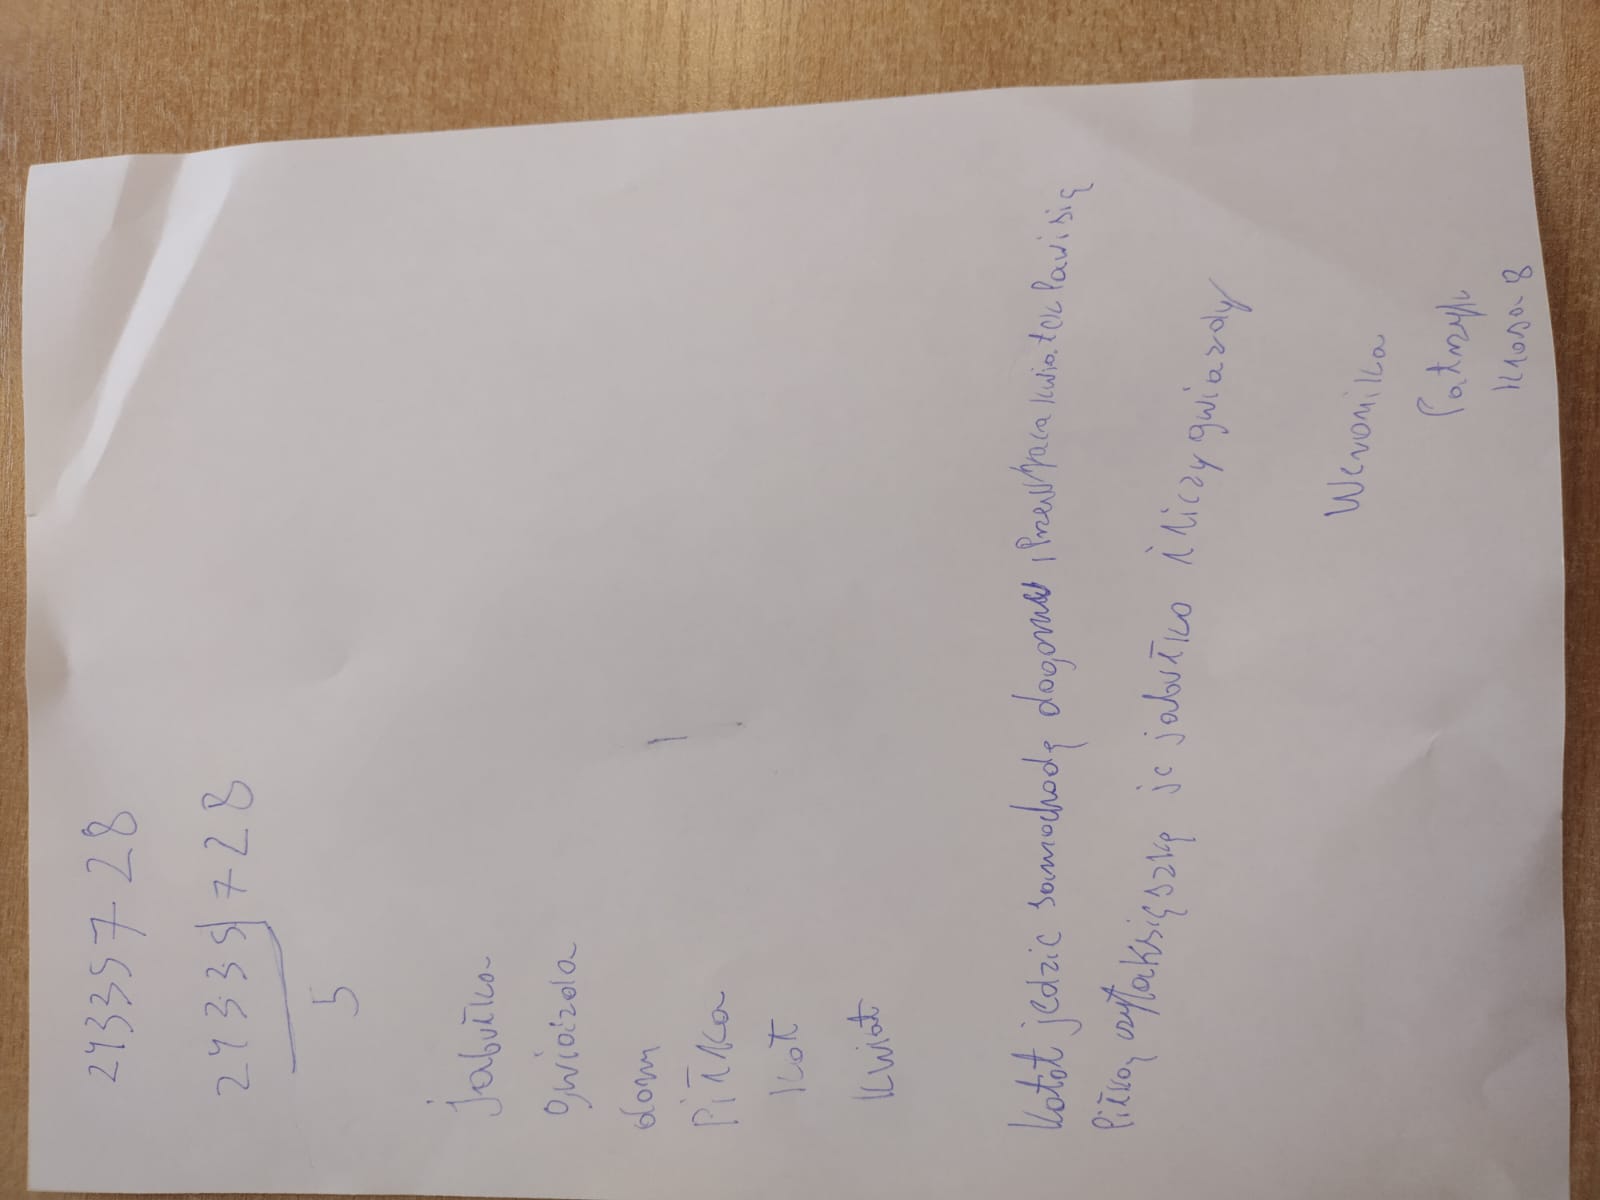 243357-28
24335728
5
jabułko
gwiaizda
dom
Piłka
Kot
Kwiat
Kotot jedzie samochodę dogomu kwiatek Pawi się
Piłką czytaksięszkę je jabułko i liczy gwiazdy
Weronika
Patryk
Klasa 8